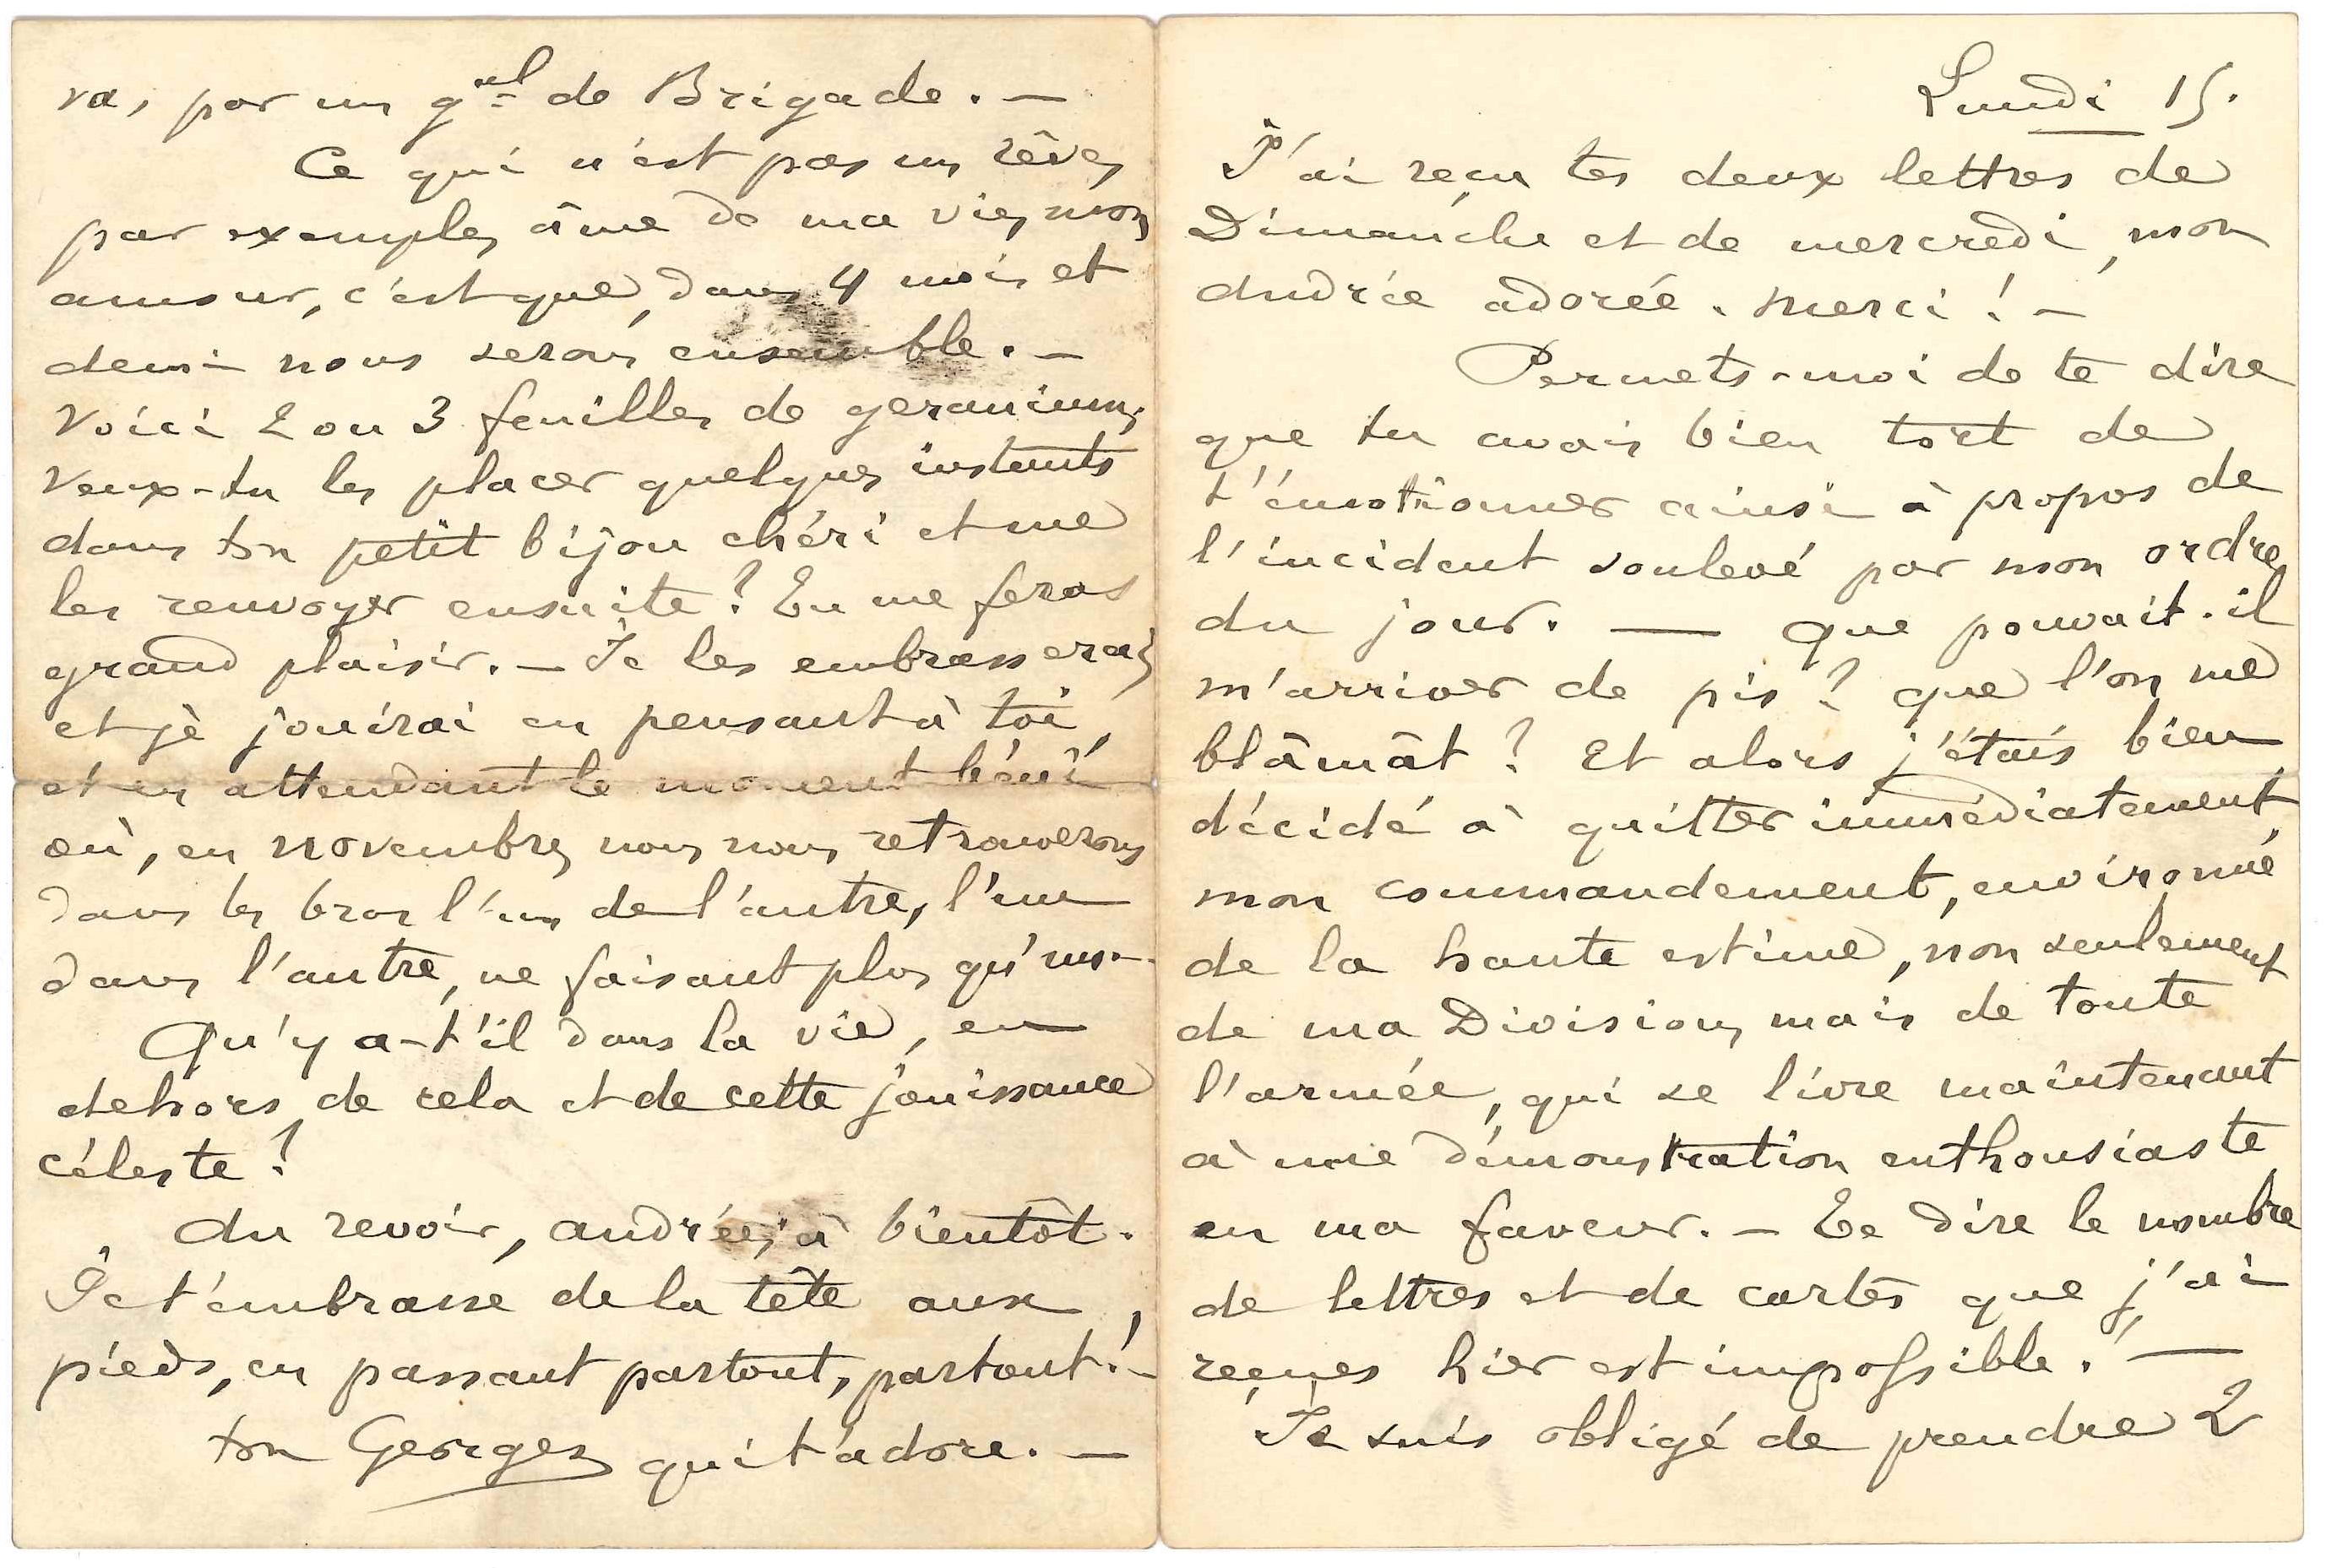 Lundi 15.
J'ai reçu tes deux lettres de
Dimanche et de mercredi, mon
Andrée adorée. Merci ! —
Permets-moi de te dire
que tu avais bien tort de
t'émotionner ainsi à propos de
l'incident soulevé par mon ordre
du jour. — Que pouvait-il
m'arriver de pis ? que l'on me
blâmât ? Et alors j'étais bien
décidé à quitter immédiatement
mon commandement, environné
de la haute estime, non seulement
de ma Division, mais de toute
l'armée, qui se livre maintenant
à une démonstration enthousiaste
en ma faveur. — Te dire le nombre
de lettres et de cartes que j'ai
reçues hier est impossible. —
Je suis obligé de prendre 2
va, par un gal de Brigade. —
Ce qui n'est pas un rêve,
par exemple, âme de ma vie, mon
amour, c'est que, dans 4 mois et
demi nous serons ensemble. —
Voici 2 ou 3 feuilles de geranium;
Veux-tu les placer quelques instants
dans ton petit bijou chéri et me
les renvoyer ensuite ? Tu me feras
grand plaisir. — Je les embrasserai
et je jouirai en pensant à toi,
et en attendant le moment béni
où, en novembre, nous nous retrouverons
dans les bras l'un de l'autre, l'un
dans l'autre, ne faisant plus qu'un. —
Qu'y a-t'il dans la vie, en
dehors de cela et de cette jouissance
céleste ?
Au revoir, Andrée, à bientôt.
Je t'embrasse de la tête aux
pieds, en passant partout, partout ! —
ton Georges qui t'adore. —